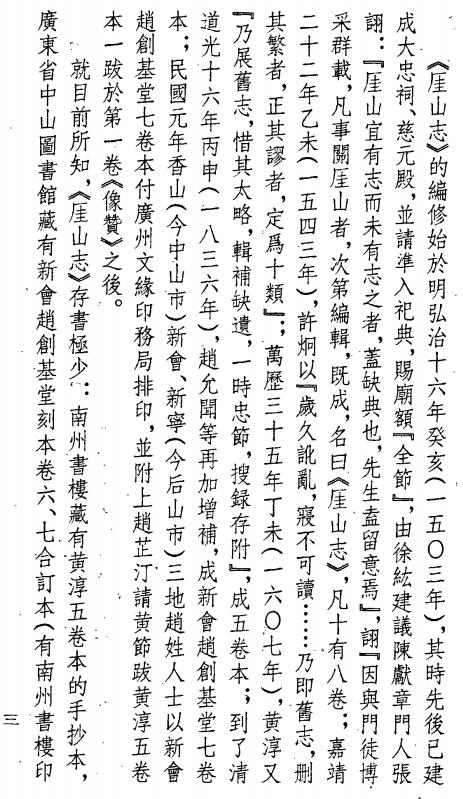 《厓山志》的編修始於明弘治十六年癸亥(一五〇三年),其時先後已建
成大忠祠、慈元殿,並請準入祀典,賜廟額『全節』,由徐紘建議陳獻章門人張
詡:『厓山宜有志而未有志之者,蓋缺典也,先生盍留意焉』,詡『因與門徒博
采群載,凡事關厓山者,次第編輯,既成,名曰《厓山志》,凡十有八卷;嘉靖
二十二年乙未(一五四三年),許炯以『歲久訛亂,寢不可讀……乃即舊志,刪
其繁者,正其謬者,定爲十類』;萬歷三十五年丁未(一六〇七年),黄淳又
『乃展舊志,惜其太略,輯補缺遺,一時忠節,搜録存附』,成五卷本;到了清
道光十六年丙申(一八三六年),趙允聞等再加增補,成新會趙創基堂七卷
本;民國元年香山(今中山市)新會、新寧(今后山市)三地趙姓人士以新會
趙創基堂七卷本付廣州文緣印務局排印,並附上趙芷汀請黄節跋黄淳五卷
本一跋於第一卷《像贊》之後。
就目前所知,《厓山志》存書極少:南州書樓藏有黄淳五卷本的手抄本,
廣東省中山圖書館藏有新會趙創基堂刻本卷六、七合訂本(有南州書樓印
三